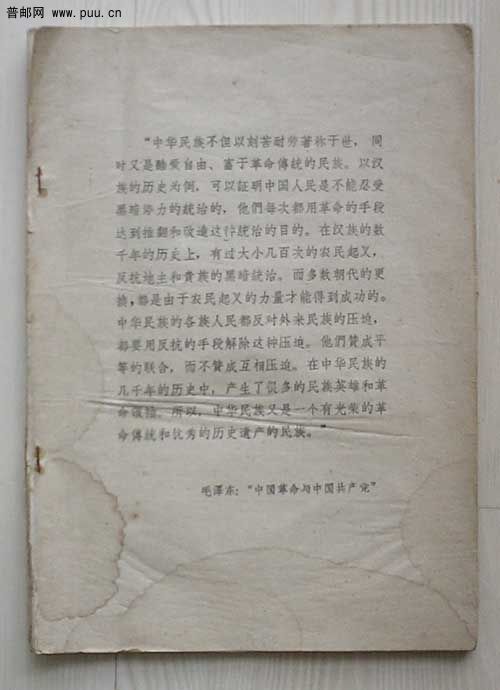 普邮网
www.puu.cn
“中华民族不但以刻苦耐劳著称于世，同
时又是酷爱自由、富于革命傳統的民族。以汉
族的历史为例，可以証明中国人民是不能忍受
黑暗势力的統治的，他們每次都用革命的手段
达到推翻和改造这种統治的目的。在汉族的数
千年的历史上，有过大小几百次的农民起义，
反抗地主和貴族的黑暗統治。而多数朝代的更
换，都是由于农民起义的力量才能得到成功的。
中华民族的各族人民都反对外来民族的压迫，
都要用反抗的手段解除这种压迫。他們贊成平
等的联合，而不贊成互相压迫。在中华民族的
几千年的历史中，产生了很多的民族英雄和革
命領袖。所以，中华民族又是一个有光荣的革
命傳統和优秀的历史遺产的民族。”
毛澤东：“中国革命与中国共产党”